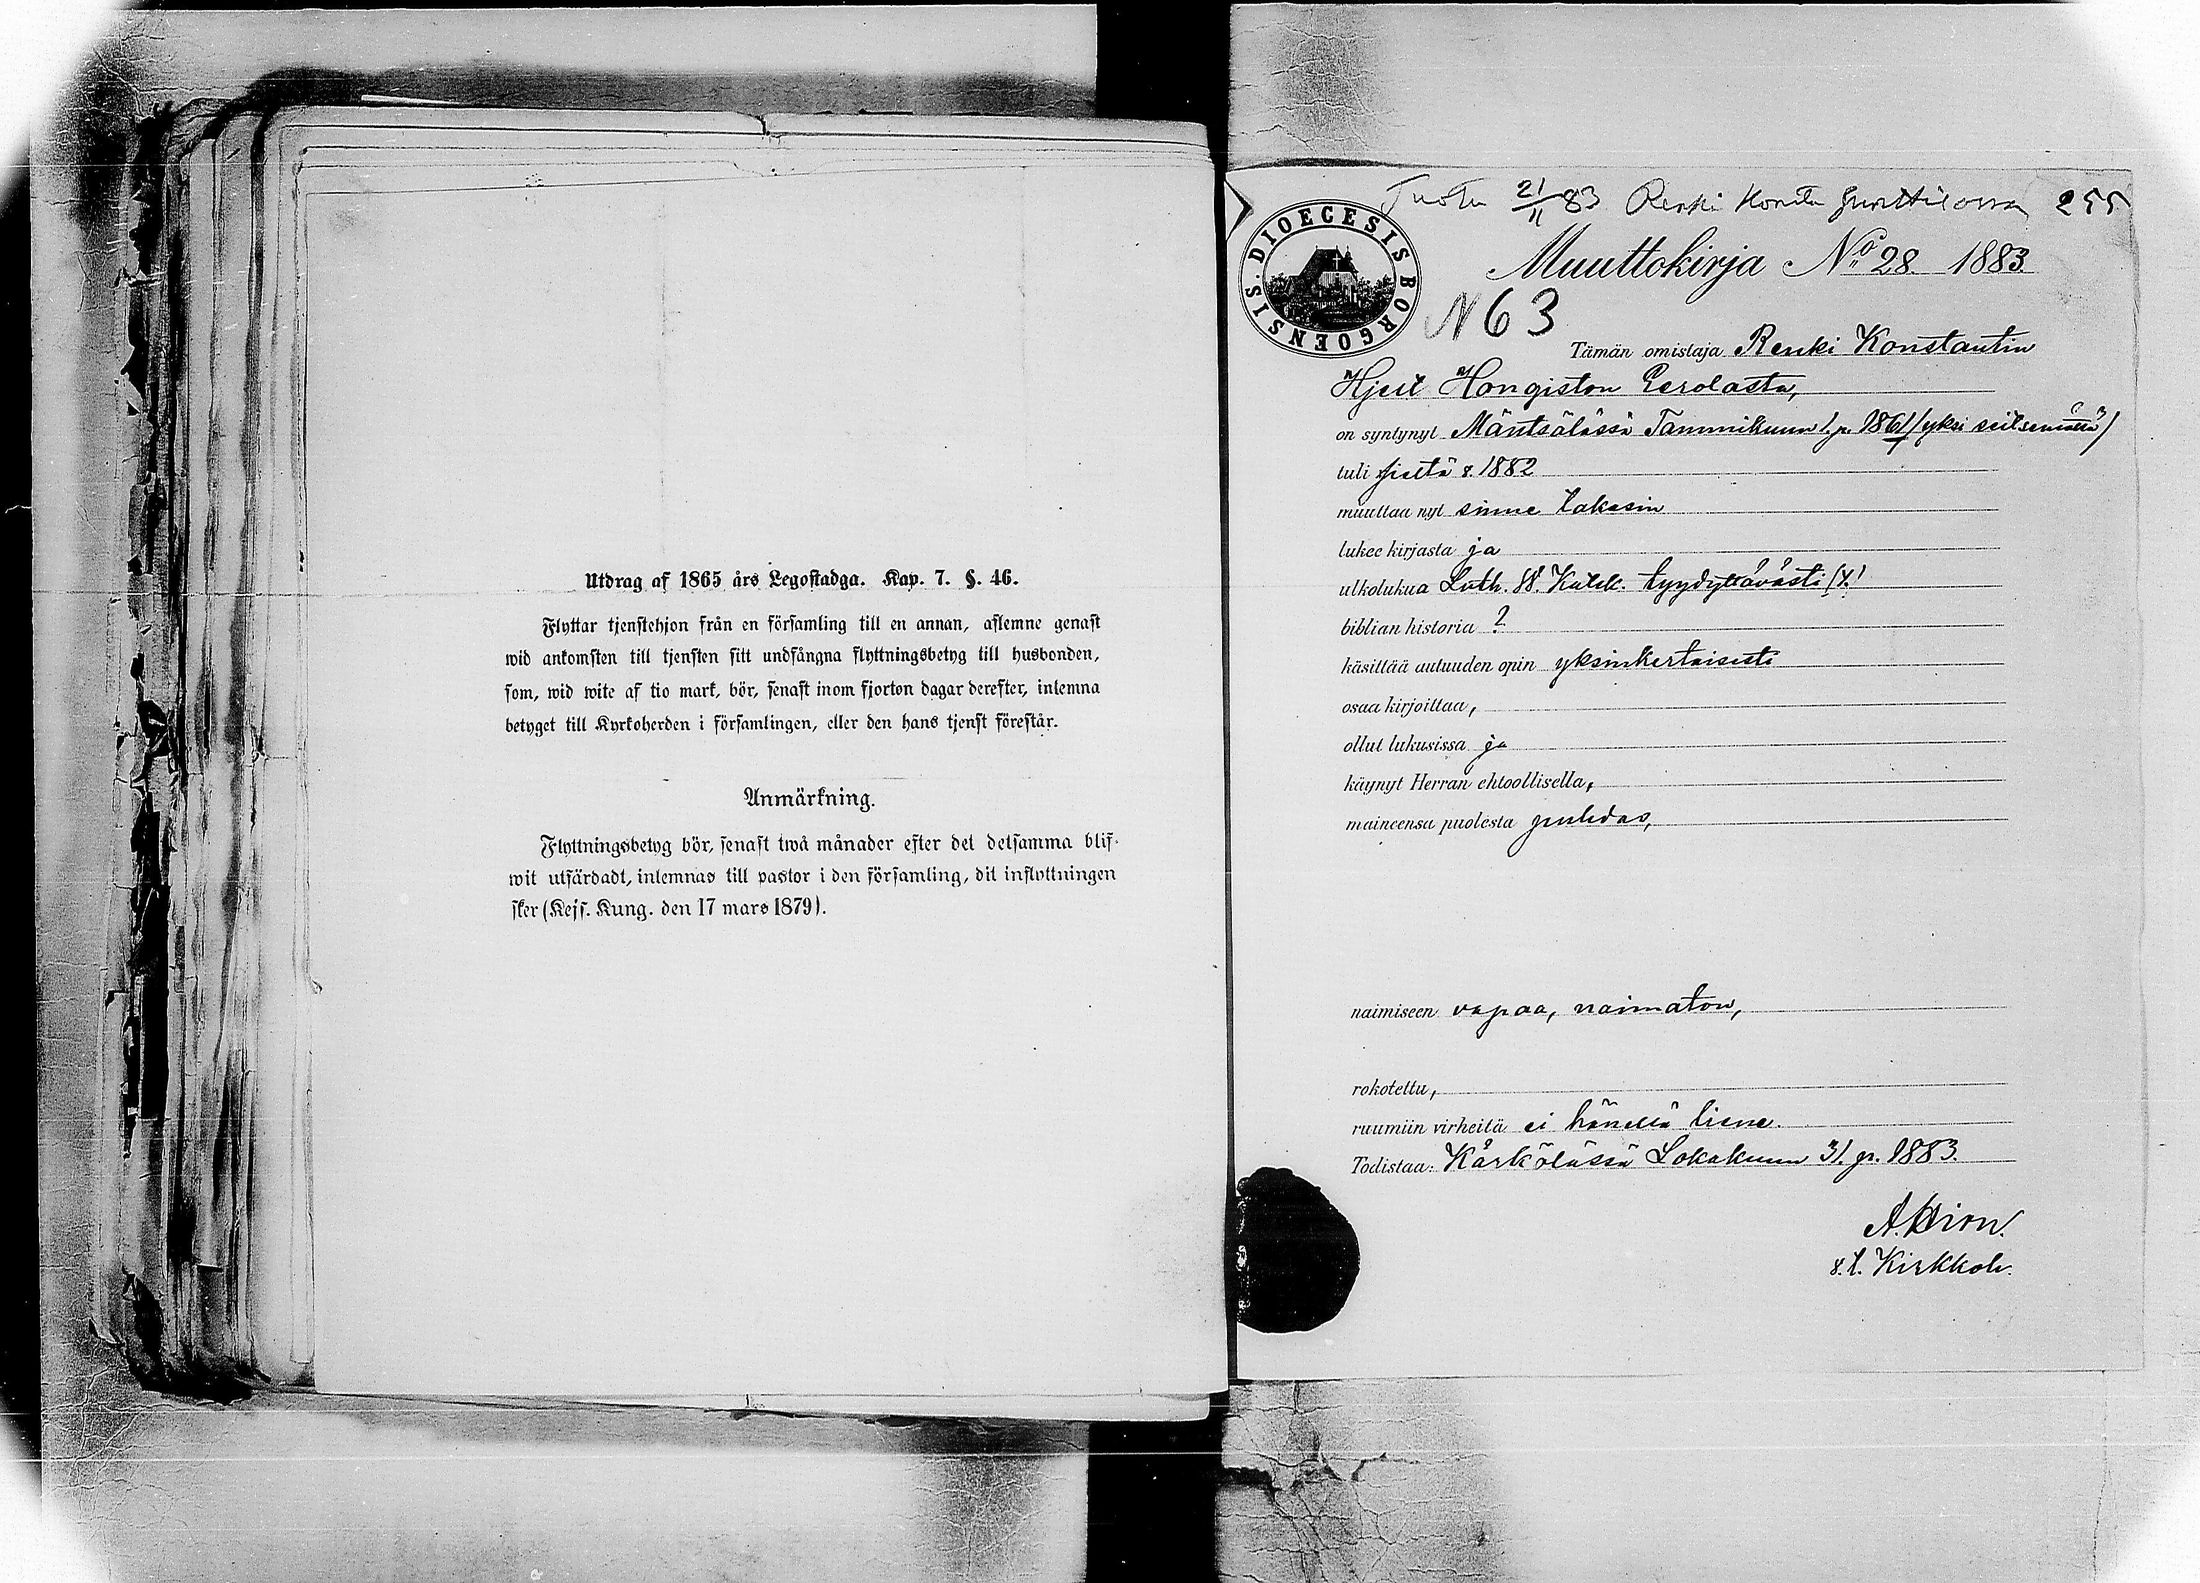 Utdrag af 1865 års Legostadga. Kap. 7. §. 46.
Flyttar tjenstehjon från en församling till en annan, aflemne genast
wid ankomsten till tjensten sitt undfångna flyttningsbetyg till husbonden,
som, wid wite af tio mark, bör, senast inom fjorton dagar derefter, inlemna
betyget till Kyrkoherden i församlingen, eller den hans tjenst förestår.
Anmärkning.
Flyttningsbetyg bör, senast twå månader efter det detsamma blif-
wit utfärdadt, inlemnas till pastor i den församling, dit inflyttningen
sker (Kejs. Kung. den 17 mars 1879).
Tuotu 21/11 83 Renki 255
DIOECESIS BORGOENSIS.
Muuttokirja No 28 1883
N 63
Tämän omistaja Renki Konstantin
Hjelt Hongiston Eerolasta,
on syntynyt Mäntsälässä Tammikuun 1. p. 1861 (yksi
tuli sieltä v. 1882
muuttaa nyt sinne takasin
lukee kirjasta ja
ulkolukua Luth. W. Katek. tyydyttävästi
biblian historia ?
käsittää autuuden opin yksinkertaisesti
osaa kirjoittaa,
ollut lukusissa ja
käynyt Herran ehtoollisella,
maineensa puolesta puhdas,
naimiseen vapaa, naimaton,
rokotettu,
ruumiin virheitä ei hänellä liene.
Todistaa: Kärkölässä Lokakuun 31. p. 1883.
A. Hirn.
v. t. Kirkkoh.